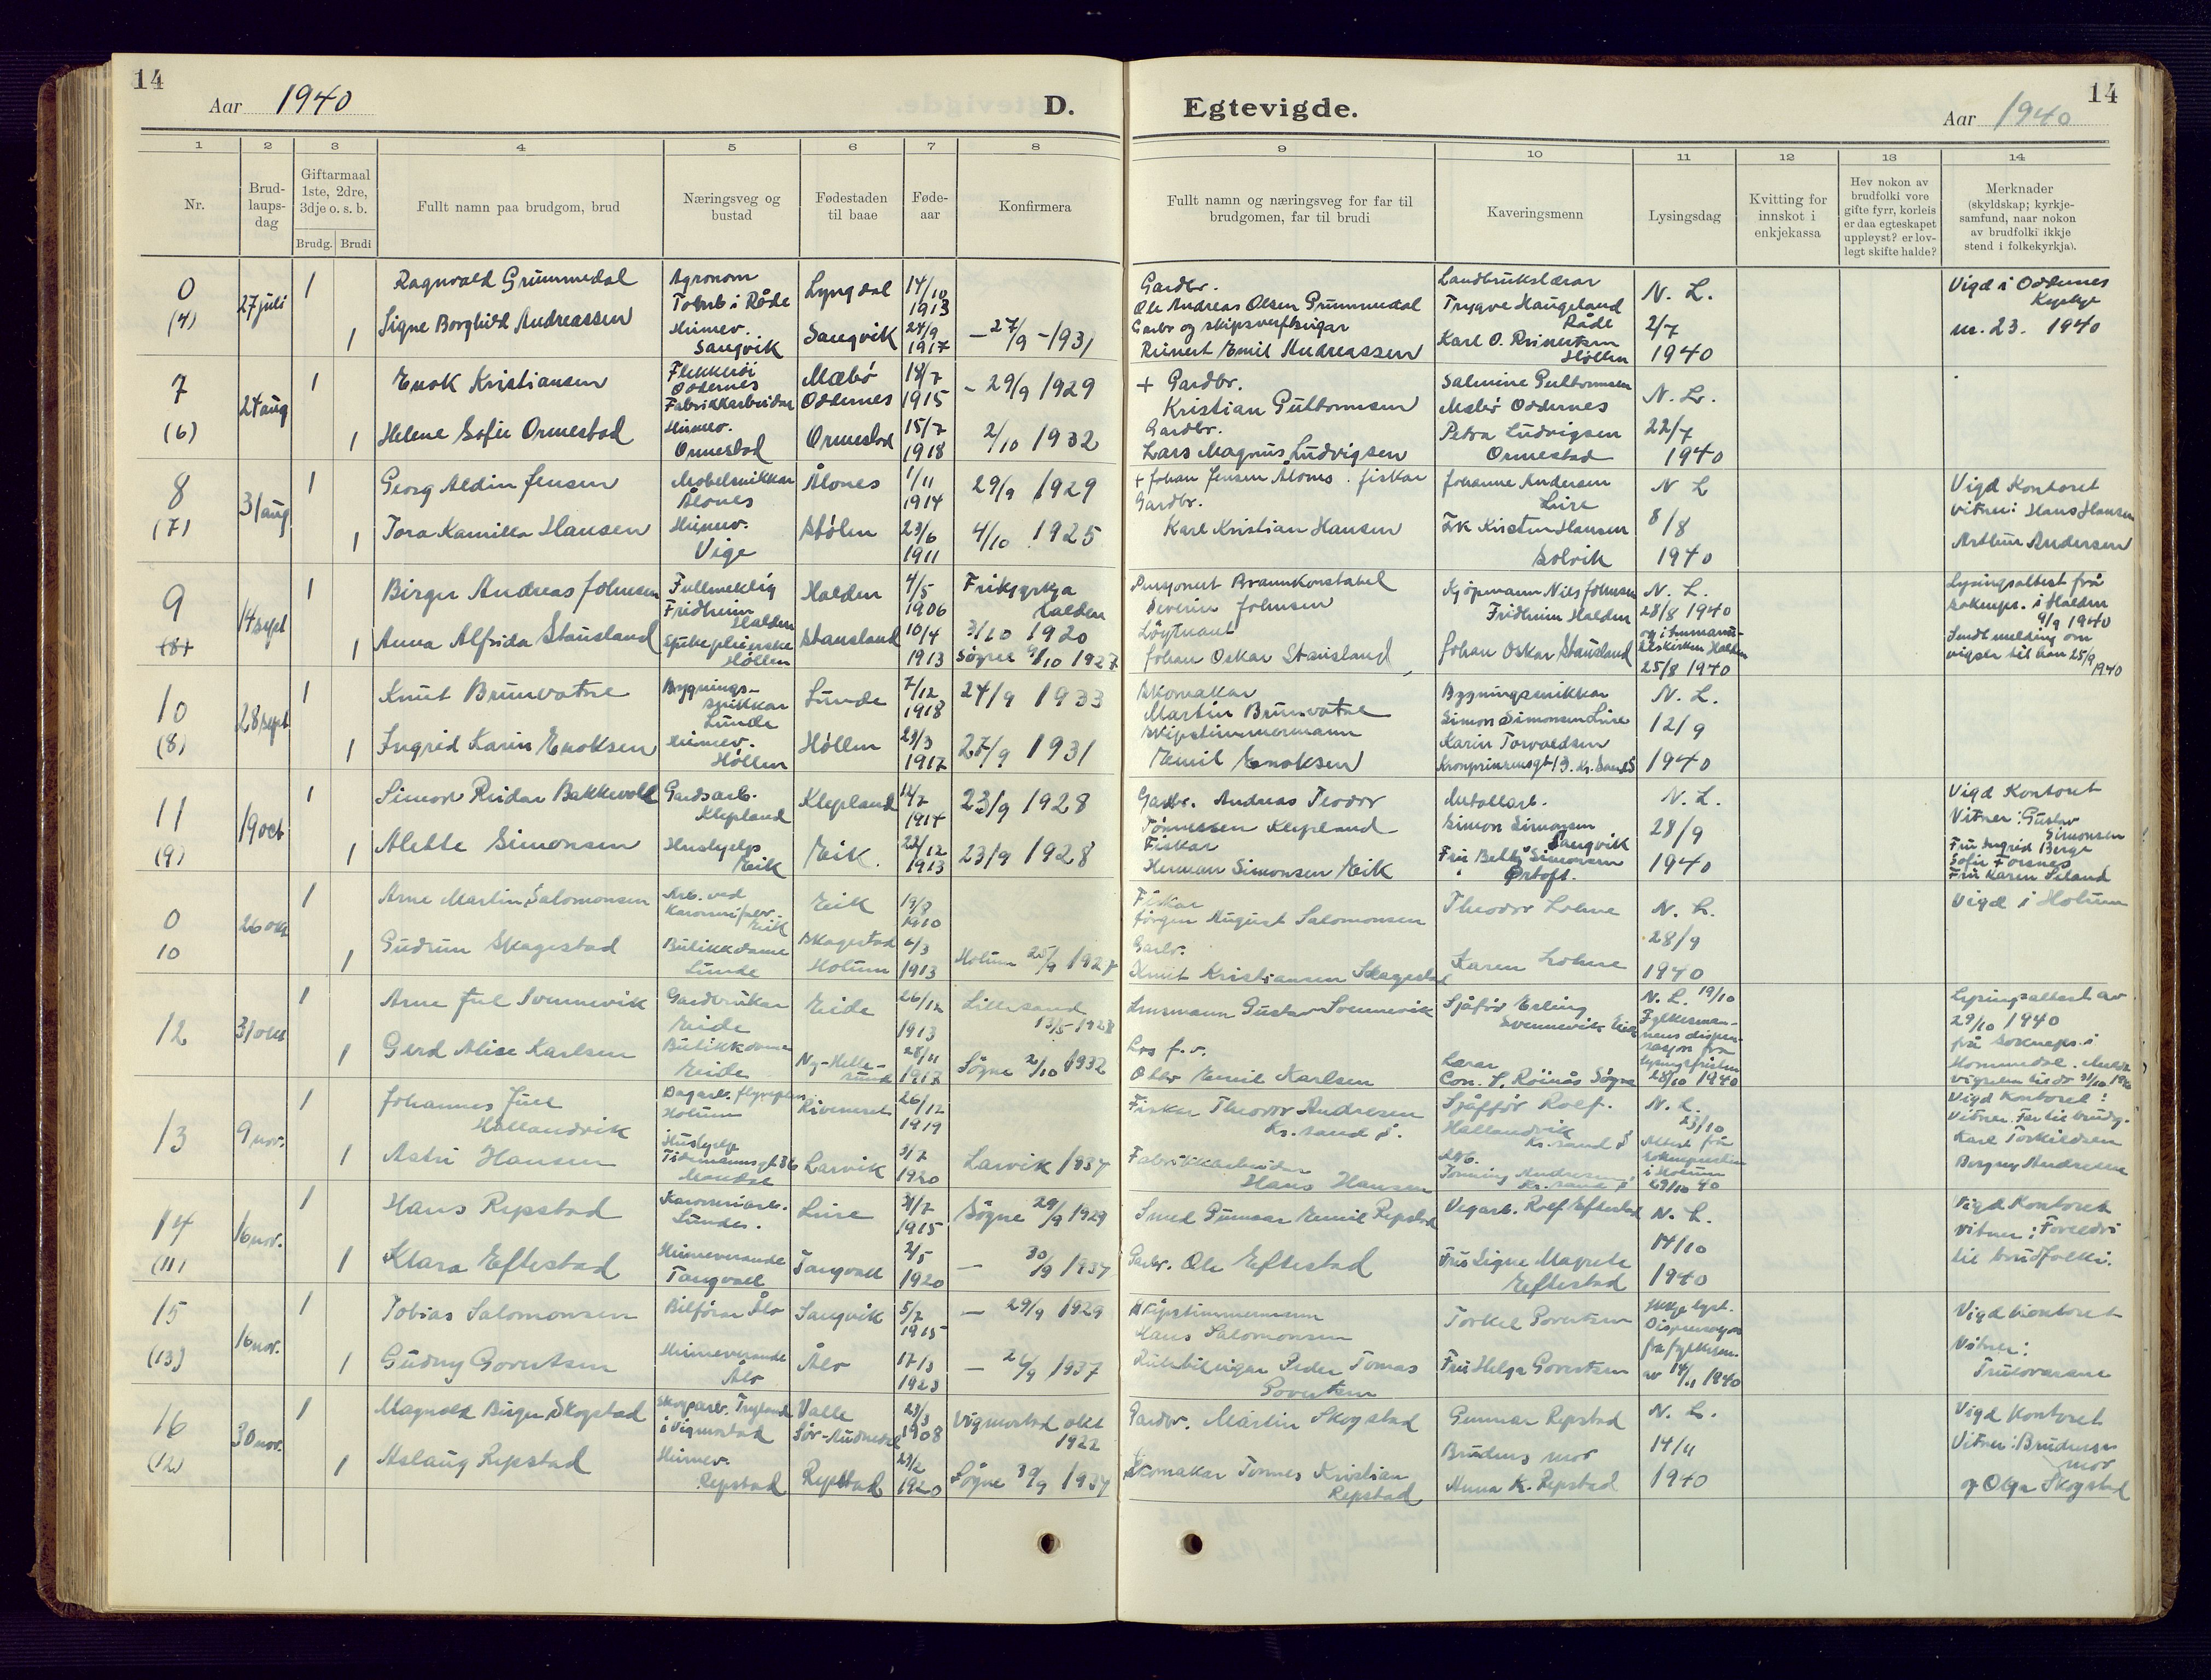 14
Aar 1940
D.
Egtevigde.
Aar 1940
14
1 2 3 4 5 6 7 8 9 10 11 12 13 14
Nr.
Brud-
laups-
dag
Giftarmaal
1ste, 2dre,
3dje o. s. b.
Brudg. Brudi
Fullt namn paa brudgom, brud
Næringsveg og
bustad
Fødestaden
til baae
Føde-
aar
Konfirmera
Fullt namn og næringsveg for far til
brudgomen, far til brudi
Kaveringsmenn
Lysingsdag
Kvitting for
innskot i
enkjekassa
Hev nokon av
brudfolki vore
gifte fyrr, korleis
er daa egteskapet
uppløyst? er lov-
legt skifte halde?
Merknader
(skyldskap; kyrkje-
samfund, naar nokon
av brudfolki ikkje
stend i folkekyrkja).
0
(4)
27 juli
1
Ragnvald Grummedal
Agronom
Lyngdal
14/10
1913
1
Signe Borghild Andreassen
Heimev.
Sangvik
Sangvik
24/9
1917
– 27/9 – 1931
Gardbr.
Ole Andreas Olsen Grummedal
Reinert Emil Andreassen
Landbrukslærar
Trygve Haugeland
Råde
Karl O. Reinertsen
Høllen
N. L.
2/7
1940
Vigd i Oddernes
nr. 23. 1940
7
(6)
24 aug
1
Enok Kristiansen
Flekkerøi
Oddernes
Fabrikkarbeidar
Mæbø
Oddernes
18/7
1915
– 29/9 1929
1
Helene Sofie Ormestad
Heimev.
Ormestad
Ormestad
15/7
1918
2/10 1932
+ Gardbr.
Kristian Guttormsen
Gardbr.
Lars Magnus Ludvigsen
Salmine Guttormsen
Mæbø Oddernes
Petra Ludvigsen
Ormestad
N. L.
22/7
1940
8
(7)
31 aug
1
Georg Aldin Jensen
Møbelsnikkar
Ålones
Ålones
1/11
1914
29/9 1929
1
Tora Kamilla Hansen
Heimev.
Vige
Stølen
23/6
1911
4/10 1925
+ Johan Jensen Ålones. fiskar
Gardbr.
Karl Kristian Hansen
Johanne Andersen
Lure
Kristen Hansen
Solvik
N L
8/8
1940
Vigd Kontoret
vitner: Hans Hansen
Arthur Andersen
9
(8)
14 sept
1
Birger Andreas Johnsen
Fullmektig
Fridheim
Halden
Halden
4/5
1906
Frikyrkja
Halden
3/10 1920
1
Anna Alfrida Stausland
Sjukepleierske
Høllen
Stausland
10/4
1913
Søgne 9/10 1927
Pensjonert Brannkonstabel
Severin Johnsen
Løytnant
Johan Oskar Stausland
Kjøpmann Nils Johnsen
Fridheim Halden
Johan Oskar Stausland
N. L.
28/8 1940
og i Immanu-
elskirken Halden
25/8 1940
Lysingsattest frå
soknepr. i Halden
9/9 1940
Sendt melding om
vigsel til han 25/9
1940
10
(8)
28 sept
1
Knut Brunvatne
Bygnings-
snikkar
Lunde
Lunde
7/12
1918
24/9 1933
1
Ingrid Karin Enoksen
Heimev.
Høllen
Høllen
29/3
1917
27/9 1931
Skomakar
Martin Brunvatne
Skipstimmermann
Emil Enoksen
Bygningssnikkar
Simon Simonsen Lure
Karin Torvaldsen
N. L.
12/9
1940
11
(9)
19 oct
1
Simon Reidar Bakkevoll
Gardsarb.
Klepland
Klepland
14/7
1914
23/9 1928
1
Alette Simonsen
Hushjelp
Eik
Eik.
22/12
1913
23/9 1928
Gardbr. Andreas Teodor
Tønnessen Klepland
Fiskar
Herman Simonsen Eik
Metallarb.
Simon Simonsen
Sangvik
Fru Betty Simonsen
Ørtoft.
N. L.
28/9
1940
Vigd Kontoret
Vitner: Gustav
Simonsen
Fru Ingrid Berge
Sofie Torsnes
Fru Karen Seland
0
10
26 okt
1
Arne Martin Salomonsen
Arb. ved
Eik
Eik
19/8
1910
1
Gudrun Skagestad
Butikkdame
Lunde
Skagestad
Holum
6/3
1913
Holum 25/9 1927
Fiskar
Jørgen August Salomonsen
Garbr.
Knut Kristiansen Skagestad
Theodor Lohne
Karen Lohne
N. L.
28/9
1940
Vigd i Holum
12
31 okt
1
Arne Juel Svennevik
Gardbrukar
Eide
Eide
26/12
1913
Lillesand
13/5 1928
1
Gerd Alise Karlsen
Butikkdame
Eide
Ny-Helle-
sund
28/11
1917
Søgne 2/10 1932
Lensmann Gustav Svennevik
Los f.v.
Olav Emil Karlsen
Sjåfør Erling
Svennevik Eide
Lærar
Con. S. Røinås Søgne
N. L. 19/10
Fylkesman-
nens dispen-
sasjon fra
lysingsfristen
28/10 1940
Lysingsattest av
29/10 1940
frå soknepr. i
Hommedal.
13
9 nov.
1
Johannes Juel
Hallandvik
Holum
26/12
1919
1
Astri Hansen
Hushjelp
Tidemannsgt 36
Mandal
Larvik
3/7
1920
Larvik 1934
Fiskar Theodor Andresen
Kr.sand S.
Fabrikkarbeidar
Hans Hansen
Sjåffør Rolf.
Hallandvik
Kr.sand S
Arb.
Kr.sand S
N. L.
23/10
Attest frå
i Holum
29/10 40
Vigd Kontoret:
Vitner. Far til brudg.
Karl Torkildsen
Borgny Andresen
14
(11)
16 nov.
1
Hans Repstad
Karosseriarb.
Lunde.
Lure
31/7
1915
Søgne 29/9 1929
1
Klara Eftestad
Heimeverande
Tangvall
Tangvall
2/5
1920
– 30/9 1934
Smed Gunnar Emil Repstad
Garbr. Ole Eftestad
Vegarb. Rolf Eftestad
Fru Signe Magrete
Eftestad
N. L.
14/10
1940
Vigd Kontoret
vitner: Foreldri
til brudfolki.
15
(13)
16 nov.
1
Tobias Salomonsen
Bilførar Ålo
Sangvik
5/7
1915
– 29/9 1929
1
Gudny Govertsen
Heimeverande
Ålo
Ålo
17/3
1923
– 26/9 1937
Skipstimmermann
Hans Salomonsen
Rutebileigar Peder Tomas
Govertsen
Torkel Govertsen
Fru Helga Govertsen
Ikkje lyst.
Dispensasjon
fra fylkesm.
av 14/11 1940
Vigd kontoret
Vitner:
Truлovarane
16
(12)
30 nov.
1
Magnold Birger Skogstad
Skogsarb. Trygland
i Vigmostad
Valle
Sør-Audnedal
23/3
1908
Vigmostad okt
1922
1
Aslaug Repstad
Heimev.
Repstad
Repstad
23/2
1920
Søgne 30/9 1934
Gardbr. Martin Skogstad
+
Skomakar Tønnes Kristian
Repstad
Gunnar Repstad
Brudens mor
Anna K. Repstad
N. L.
14/11
1940
Vigd Kontoret
Vitner: Brudens
mor
og Olga Skogstad